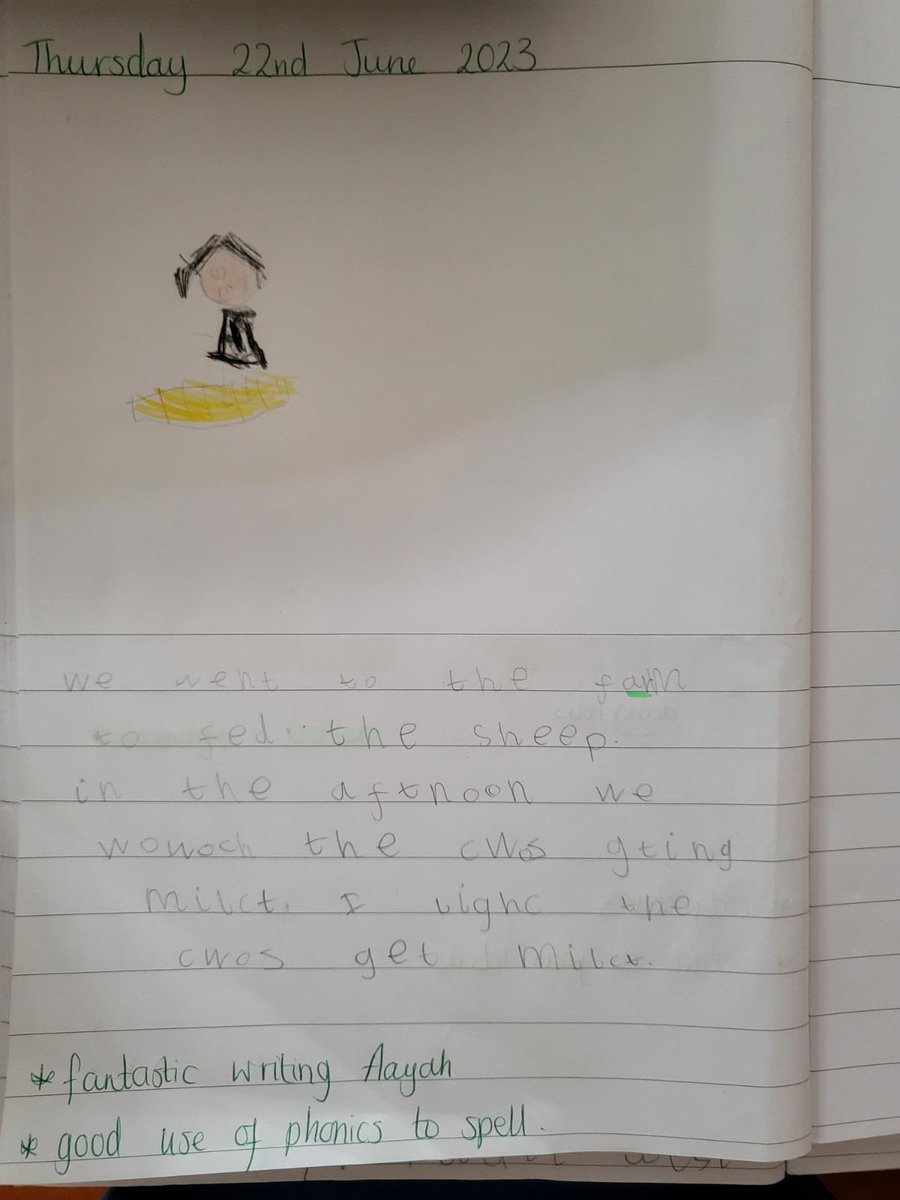 Thursday 22nd June 2023
we went to the farm
to fed the sheep.
in the aftnoon we
wowoch the cwos gting
milct. I lighc the
cwos get milct.
* fantastic writing Aayah
* good use of phonics to spell.